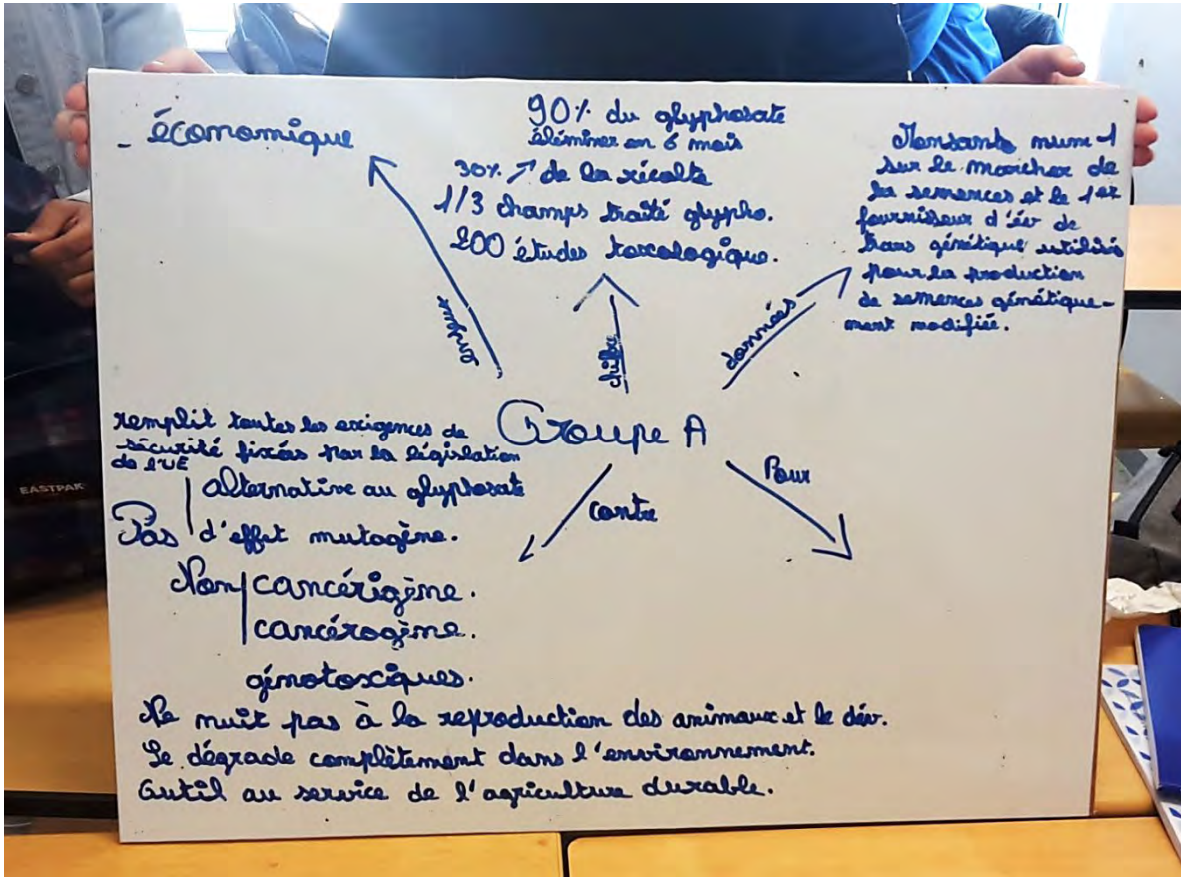 - économique
90% du glyphosate
éléminer en 6 mois
30% ↗ de la récolte
1/3 champs traité glypho.
200 études toxcologique.
Monsanto num-1
sur le marcher de
la semences et le 1er
fournisseur d'év de
trans génétique utilisés
pour la production
de semences génétique-
ment modifiée.
enjeux
chiffre
données
Groupe A
contre
Pour
remplit toutes les exigences de
sécurité fixées par la législation
de l'UE
alternative au glyphosate
Pas d'effet mutagène.
Non cancérigène.
cancérogène.
génotoxciques.
Ne nuit pas à la reproduction des animaux et le dév.
Se dégrade complètement dans l'environnement.
Outil au service de l'agriculture durable.
EASTPAK